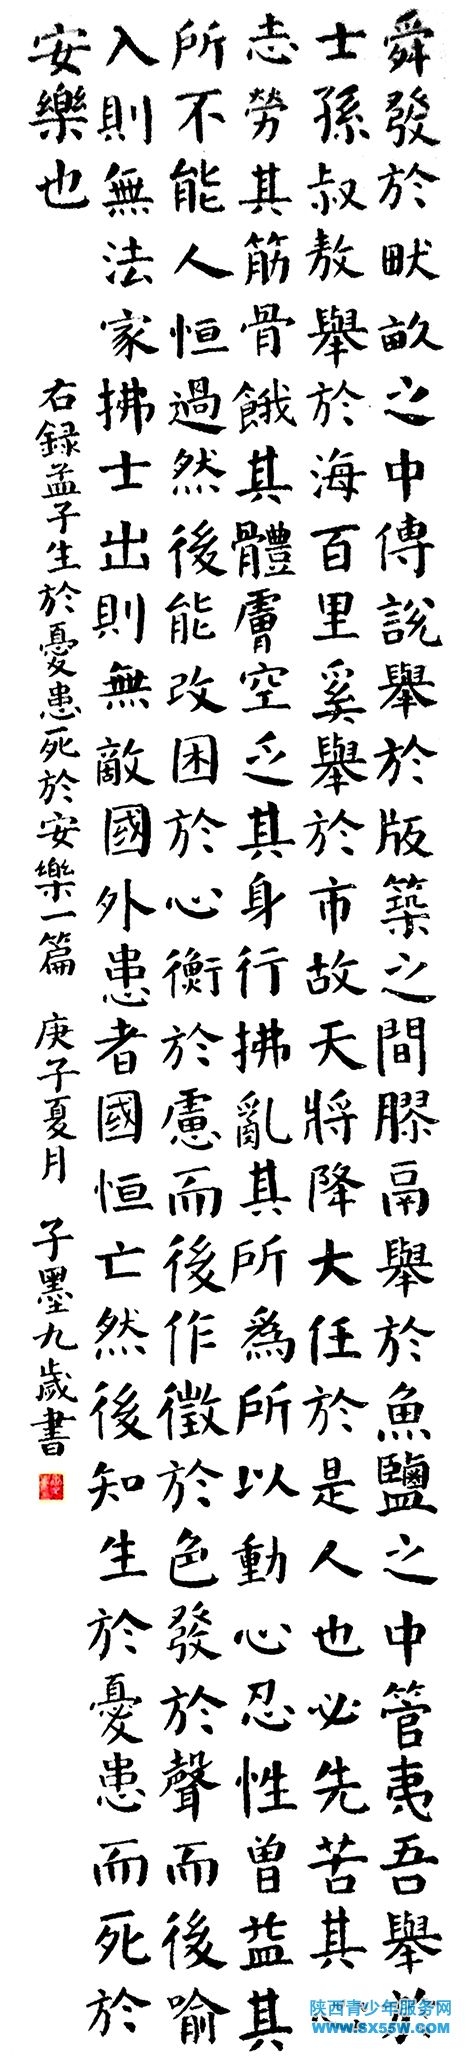 舜發於畎畝之中傅說舉於版築之間膠鬲舉於魚鹽之中管夷吾舉於
士孫叔敖舉於海百里奚舉於市故天將降大任於是人也必先苦其心
志勞其筋骨餓其體膚空乏其身行拂亂其所爲所以動心忍性曾益其
所不能人恒過然後能改困於心衡於慮而後作徵於色發於聲而後喻
入則無法家拂士出則無敵國外患者國恒亡然後知生於憂患而死於
安樂也
右録孟子生於憂患死於安樂一篇 庚子夏月 子墨九歲書
陕西青少年服务网
www.sx55w.com